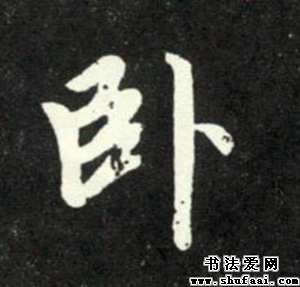 卧
书法爱网
www.shufaai.com